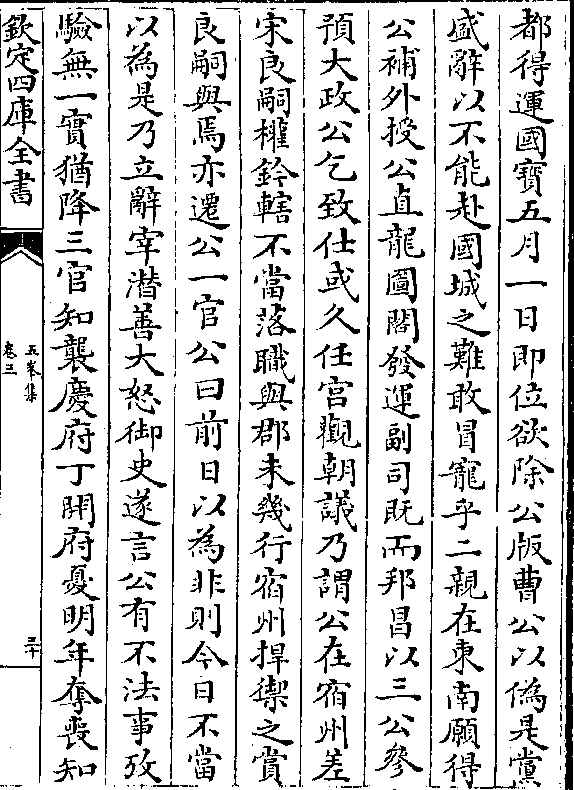 都得運國寶五月一日即位欲除公版曹公以偽是黨
盛辭以不能赴國城之難敢冒寵乎二親在東南願得
公補外授公直龍圖閣發運副司既而邦昌以三公參
預大政公乞致仕或久任宫觀朝議乃謂公在宿州差
宋良嗣權鈐轄不當落職與郡未幾行宿州捍禦之賞
良嗣與焉亦遷公一官公曰前日以為非則今日不當
以為是乃立辭宰潜善大怒御史遂言公有不法事攷
驗無一實猶降三官知襲慶府丁開府憂明年奪喪知
欽定四庫全書
五峯集
卷三
三十